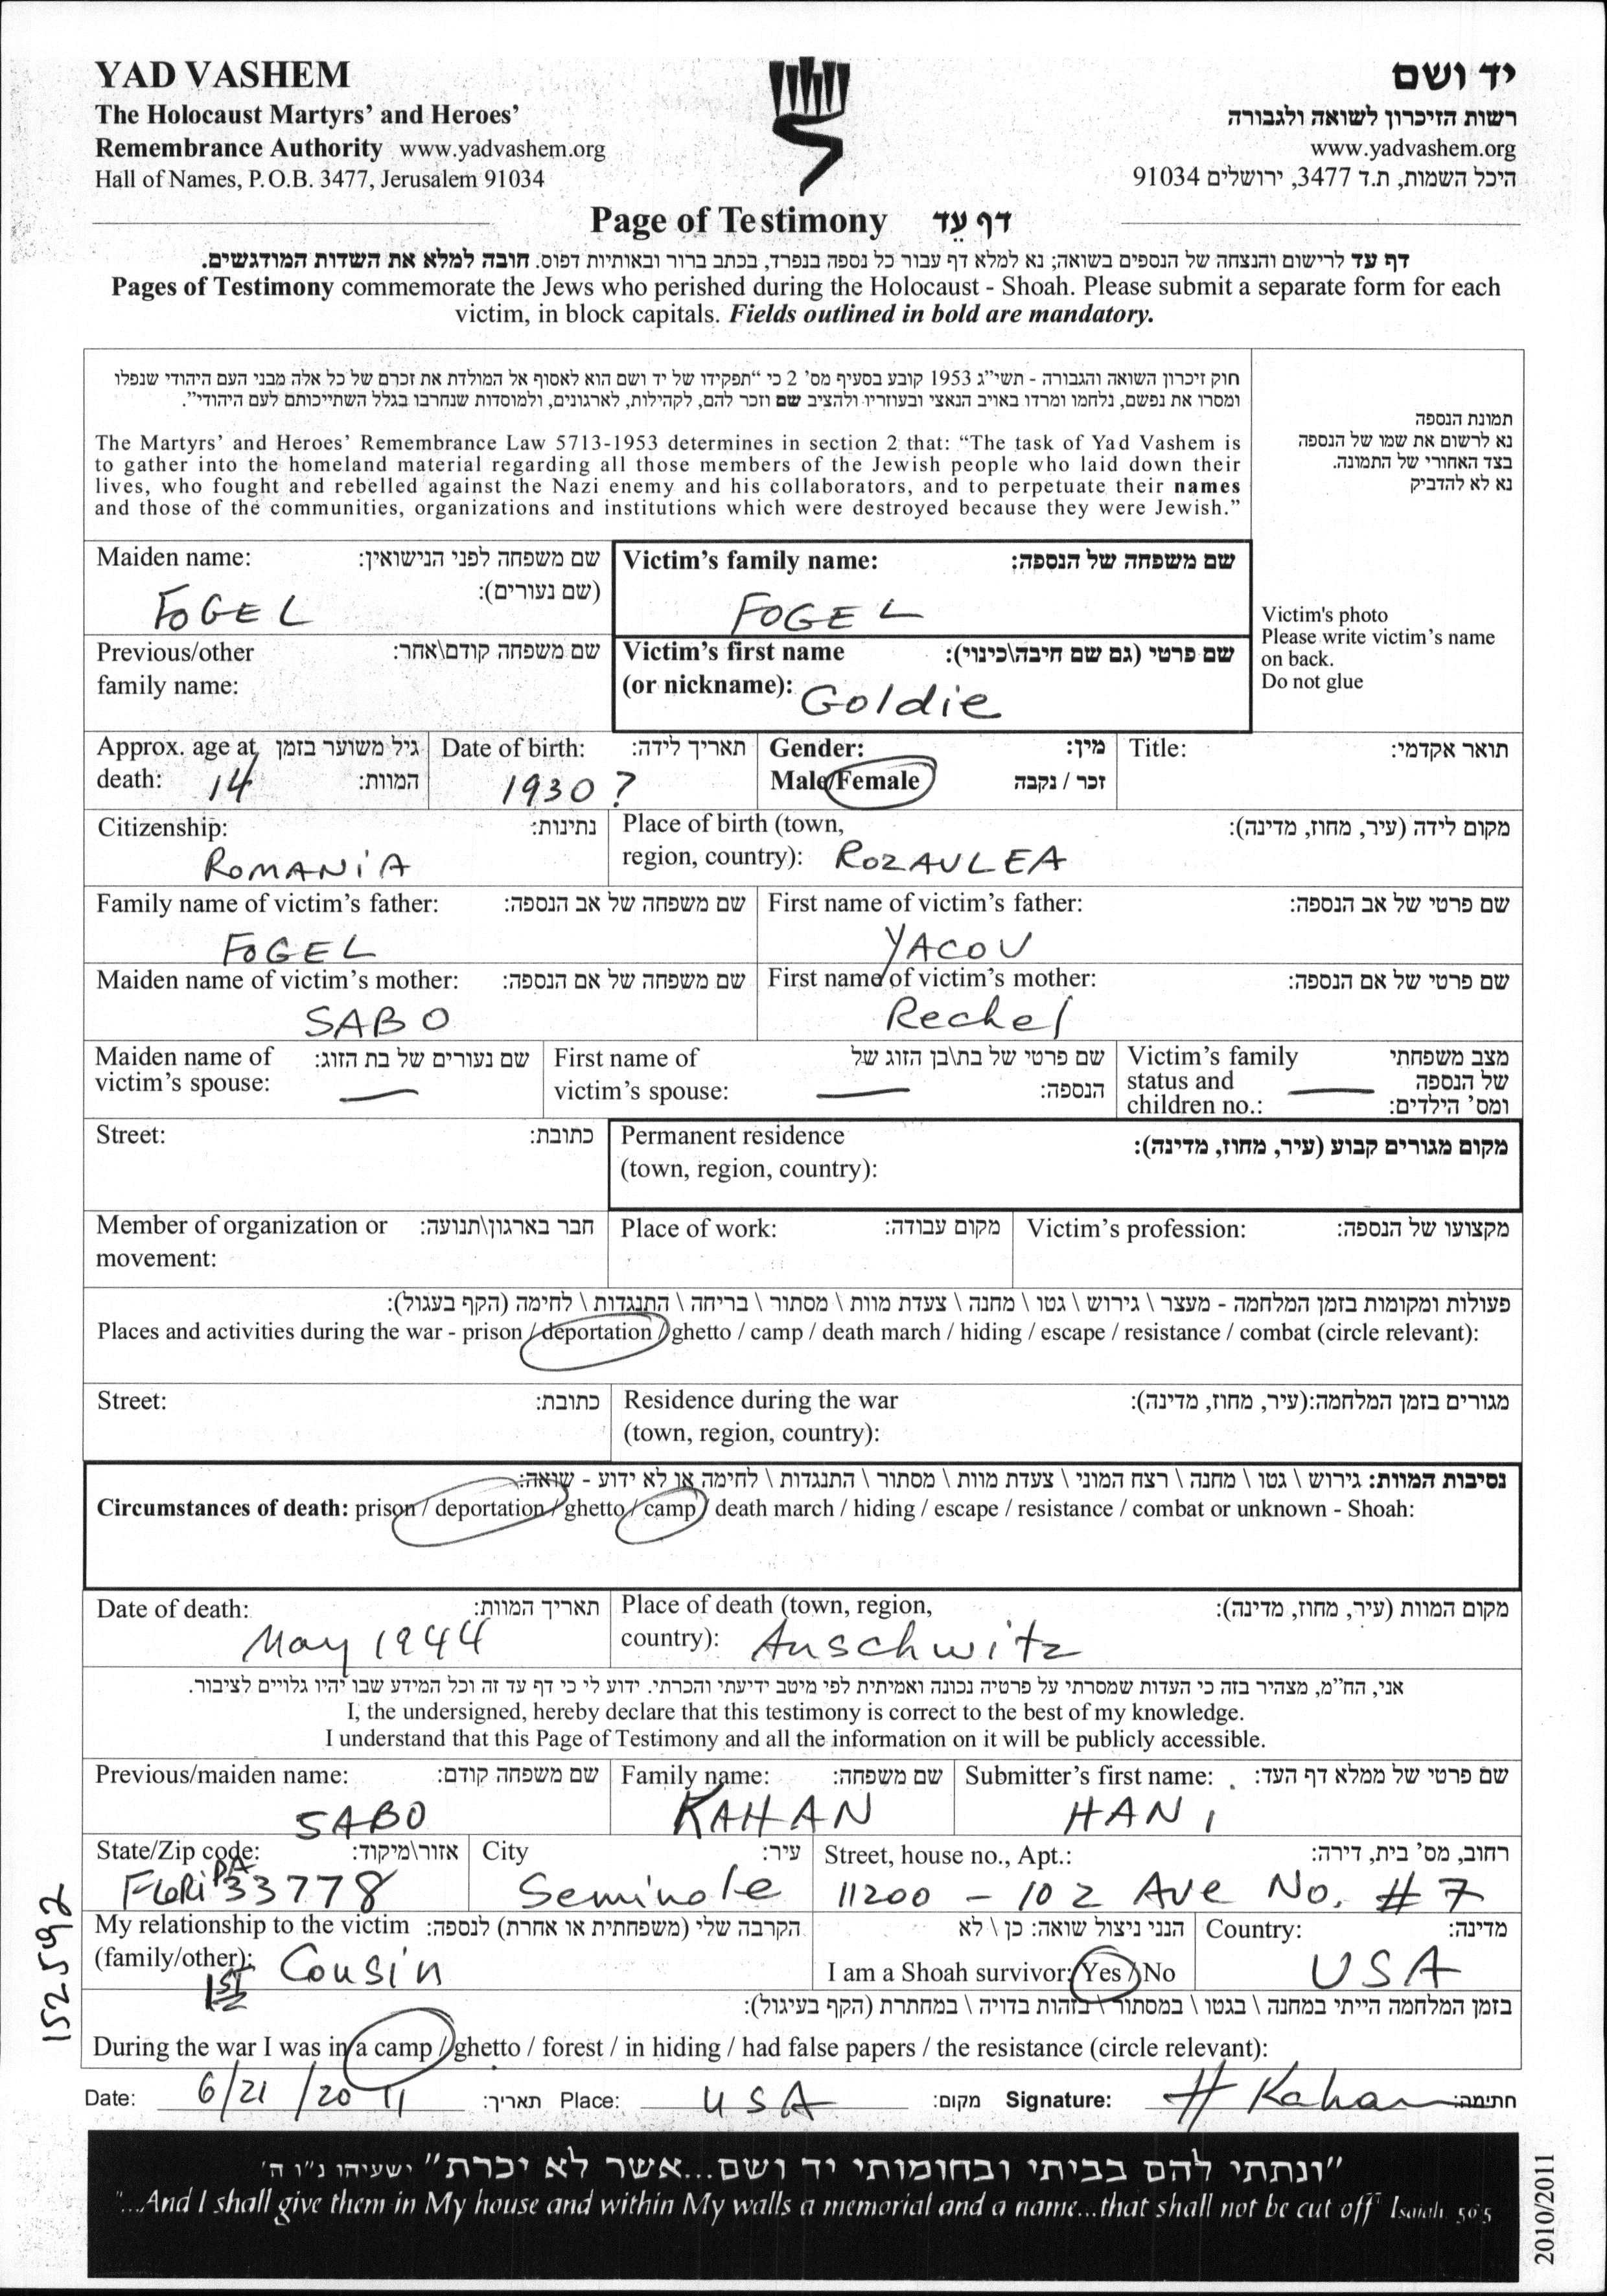 YAD VASHEM
The Holocaust Martyrs' and Heroes'
Remembrance Authority www.yadvashem.org
Hall of Names, P.O.B. 3477, Jerusalem 91034
יד ושם
רשות הזיכרון לשואה ולגבורה
www.yadvashem.org
היכל השמות, ת.ד 3477, ירושלים 91034
Page of Testimony דף עֵד
דף עד לרישום והנצחה של הנספים בשואה; נא למלא דף עבור כל נספה בנפרד, בכתב ברור ובאותיות דפוס. חובה למלא את השדות המודגשים.
Pages of Testimony commemorate the Jews who perished during the Holocaust - Shoah. Please submit a separate form for each
victim, in block capitals. Fields outlined in bold are mandatory.
חוק זיכרון השואה והגבורה - תשי"ג 1953 קובע בסעיף מס' 2 כי "תפקידו של יד ושם הוא לאסוף אל המולדת את זכרם של כל אלה מבני העם היהודי שנפלו
ומסרו את נפשם, נלחמו ומרדו באויב הנאצי ובעוזריו ולהציב שם וזכר להם, לקהילות, לארגונים, ולמוסדות שנחרבו בגלל השתייכותם לעם היהודי".
The Martyrs' and Heroes' Remembrance Law 5713-1953 determines in section 2 that: "The task of Yad Vashem is
to gather into the homeland material regarding all those members of the Jewish people who laid down their
lives, who fought and rebelled against the Nazi enemy and his collaborators, and to perpetuate their names
and those of the communities, organizations and institutions which were destroyed because they were Jewish."
תמונת הנספה
נא לרשום את שמו של הנספה
בצד האחורי של התמונה.
נא לא להדביק
Victim's photo
Please write victim's name
on back.
Do not glue
Maiden name: שם משפחה לפני הנישואין:
(שם נעורים):
FOGEL
Victim's family name: שם משפחה של הנספה:
FOGEL
Previous/other שם משפחה קודם\אחר:
family name:
Victim's first name שם פרטי (גם שם חיבה\כינוי):
(or nickname): Goldie
Approx. age at גיל משוער בזמן
death: 14 המוות:
Date of birth: תאריך לידה:
1930 ?
Gender: מין:
Male/Female זכר / נקבה
Title: תואר אקדמי:
Citizenship: נתינות:
ROMANiA
Place of birth (town, מקום לידה (עיר, מחוז, מדינה):
region, country): ROZAVLEA
Family name of victim's father: שם משפחה של אב הנספה:
FOGEL
First name of victim's father: שם פרטי של אב הנספה:
YACOV
Maiden name of victim's mother: שם משפחה של אם הנספה:
SABO
First name of victim's mother: שם פרטי של אם הנספה:
Rechel
Maiden name of שם נעורים של בת הזוג:
victim's spouse: —
First name of שם פרטי של בת\בן הזוג של
victim's spouse: — הנספה:
Victim's family מצב משפחתי
status and — של הנספה
children no.: ומס' הילדים:
Street: כתובת:
Permanent residence מקום מגורים קבוע (עיר, מחוז, מדינה):
(town, region, country):
Member of organization or חבר בארגון\תנועה:
movement:
Place of work: מקום עבודה:
Victim's profession: מקצועו של הנספה:
פעולות ומקומות בזמן המלחמה - מעצר \ גירוש \ גטו \ מחנה \ צעדת מוות \ מסתור \ בריחה \ התנגדות \ לחימה (הקף בעגול):
Places and activities during the war - prison / deportation / ghetto / camp / death march / hiding / escape / resistance / combat (circle relevant):
Street: כתובת:
Residence during the war מגורים בזמן המלחמה:(עיר, מחוז, מדינה):
(town, region, country):
נסיבות המוות: גירוש \ גטו \ מחנה \ רצח המוני \ צעדת מוות \ מסתור \ התנגדות \ לחימה או לא ידוע - שואה:
Circumstances of death: prison / deportation / ghetto / camp / death march / hiding / escape / resistance / combat or unknown - Shoah:
Date of death: תאריך המוות:
May 1944
Place of death (town, region, מקום המוות (עיר, מחוז, מדינה):
country): Auschwitz
אני, הח"מ, מצהיר בזה כי העדות שמסרתי על פרטיה נכונה ואמיתית לפי מיטב ידיעתי והכרתי. ידוע לי כי דף עד זה וכל המידע שבו יהיו גלויים לציבור.
I, the undersigned, hereby declare that this testimony is correct to the best of my knowledge.
I understand that this Page of Testimony and all the information on it will be publicly accessible.
Previous/maiden name: שם משפחה קודם:
SABO
Family name: שם משפחה:
KAHAN
Submitter's first name: שם פרטי של ממלא דף העד:
HANI
State/Zip code: אזור\מיקוד:
FloRiDA 33778
City עיר:
Seminole
Street, house no., Apt.: רחוב, מס' בית, דירה:
11200 - 102 Ave No. #7
My relationship to the victim הקרבה שלי (משפחתית או אחרת) לנספה:
(family/other): 1st Cousin
הנני ניצול שואה: כן \ לא
I am a Shoah survivor: Yes / No
Country: מדינה:
USA
בזמן המלחמה הייתי במחנה \ בגטו \ במסתור \ בזהות בדויה \ במחתרת (הקף בעיגול):
During the war I was in a camp / ghetto / forest / in hiding / had false papers / the resistance (circle relevant):
Date: 6/21/2011 תאריך: Place: USA מקום: Signature: H Kahan חתימה:
"ונתתי להם בביתי ובחומותי יד ושם...אשר לא יכרת" ישעיהו נ"ו ה'
"...And I shall give them in My house and within My walls a memorial and a name...that shall not be cut off" Isaiah 56:5
152592
2010/2011